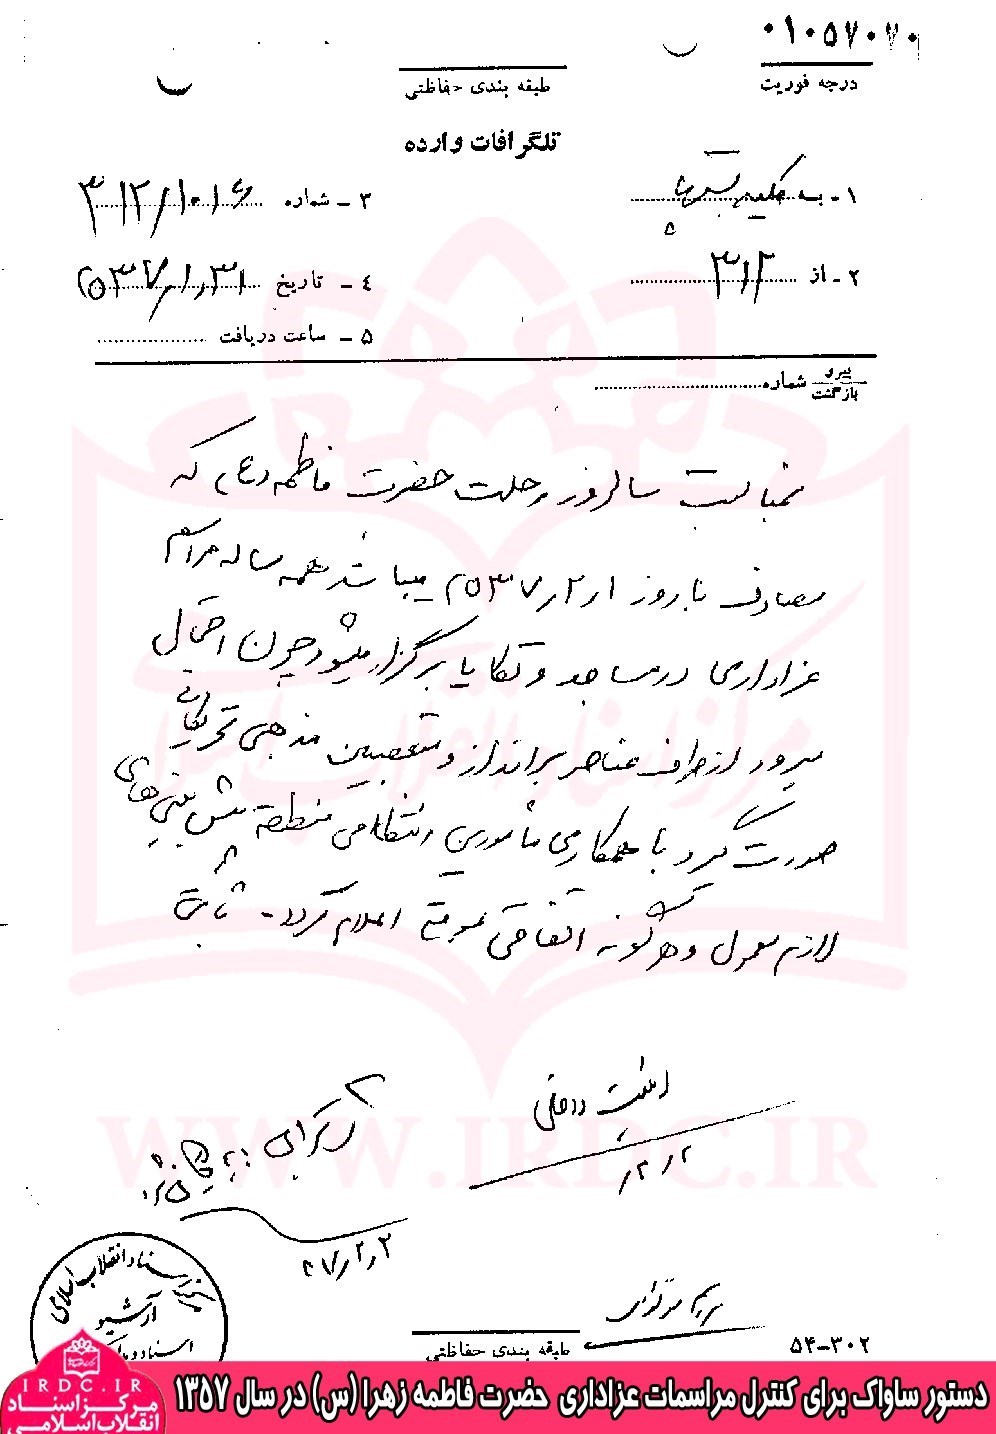 ۰۱۰۵۷۰۷۰
درجه فوریت
طبقه بندی حفاظتی
تلگرافات وارده
۱ - به کلیه
۳ - شماره ۳۱۲/۱۰۱۶
۲ - از ۳۱۲
۴ - تاریخ ۲۵۳۷/۱/۳۱
۵ - ساعت دریافت
پیرو
بازگشت شماره
بمناسبت سالروز رحلت حضرت فاطمه (ع) که
مصادف با روز ۲۵۳۷/۲/۱ میباشد همه ساله مراسم
عزاداری در مساجد و تکایا برگزار میشود چون احتمال
میرود از طرف عناصر برانداز و متعصبین مذهبی تحریکاتی
صورت گیرد با همکاری مأمورین انتظامی منطقه پیش بینی‌های
لازم معمول و هر گونه اتفاقی بموقع اعلام گردد - ثابتی
امنیت داخلی
۲/۲
۳۷/۲/۲
مرکز اسناد انقلاب اسلامی
آرشیو
WWW.IRDC.IR
طبقه بندی حفاظتی
۵۴-۳۰۲
دستور ساواک برای کنترل مراسمات عزاداری حضرت فاطمه زهرا (س) در سال ۱۳۵۷
IRDC.IR
مرکز اسناد
انقلاب اسلامی